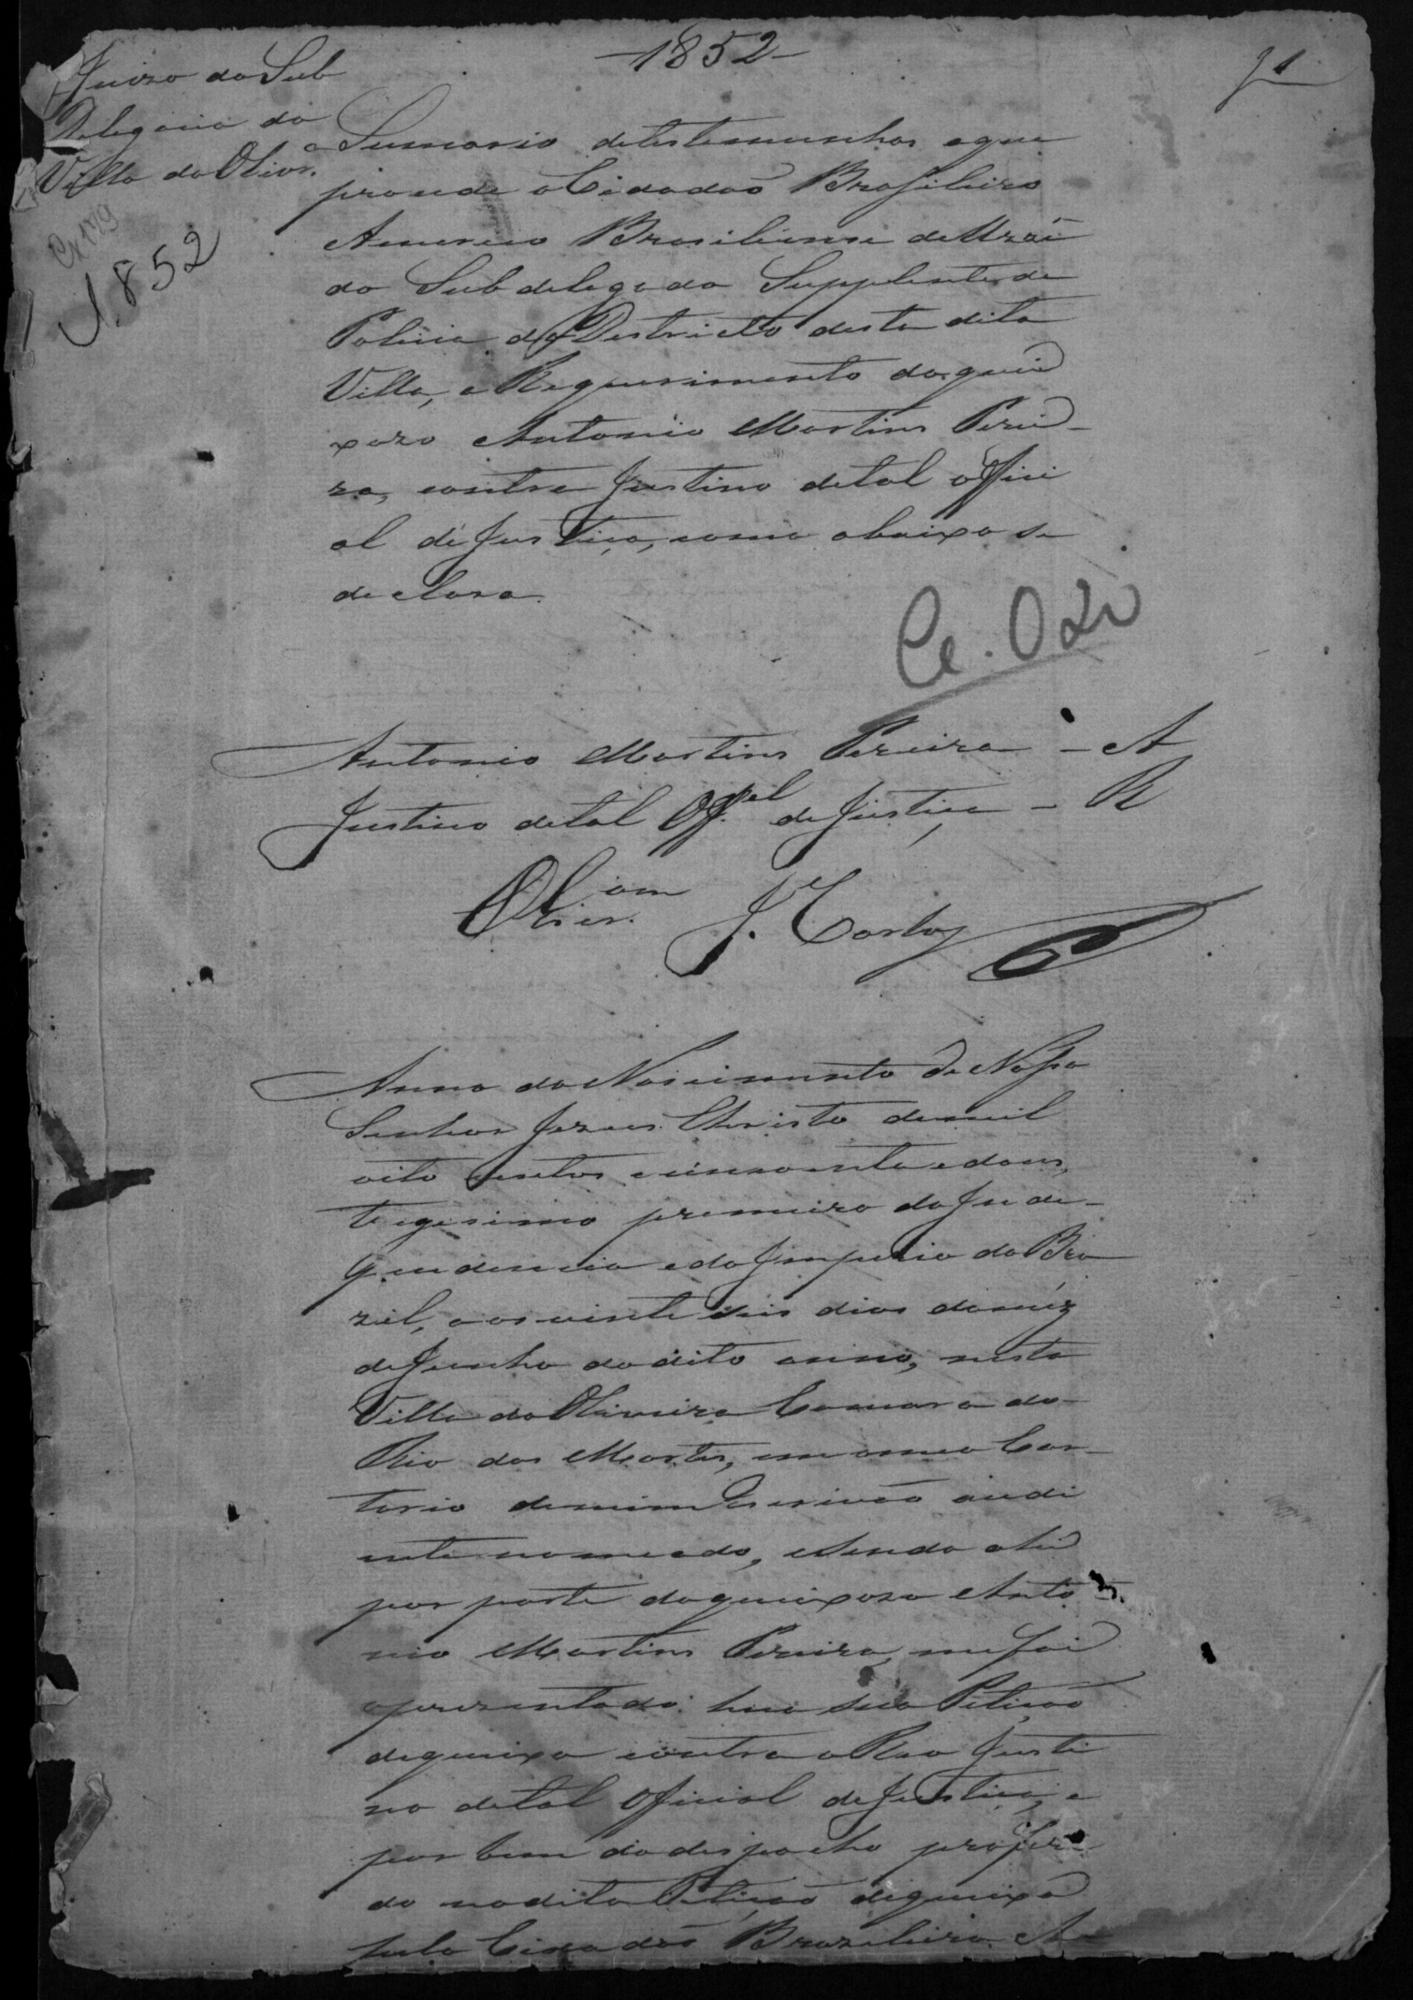 -1852-
Juizo da Sub
Delegacia da
Villa da Olivr.ª
1852
Summario de testemunhas a que
procede o Cidadaõ Brasileiro
Americo Brasiliense
do Subdelegado Supplente de
Policia do Districto desta dita
Villa, a Requerimento do quei
xozo Antonio Martins Perei-
ra, contra Justino de tal offici
al de Justiça, como abaixo se
declara.
Ce. 02
Antonio Martins Pereira - A
Justino de tal Off.el de Justiça - R
Anno do Nascimento de Nosso
Senhor Jezus Christo de mil
oito centos e cincoenta e dous,
trigesimo primeiro da Inde-
pendencia e do Imperio do Bra
zil, aos vinte seis dias do mêz
de Junho do dito anno, nesta
Villa da Oliveira Comarca do
Rio das Mortes, em o meo Car-
torio de mim Escrivaõ audi
ante nomeado, e sendo ahi
por parte do queixozo Anto
nio Martins Pereira, me foi
aprezentado hua sua Petiçaõ
de queixa contra o Reo Justi
no de tal Official de Justiça, e
por bem do despacho proferi
do na dita Petiçaõ de queixa
pelo Cidadaõ Brazileiro A-